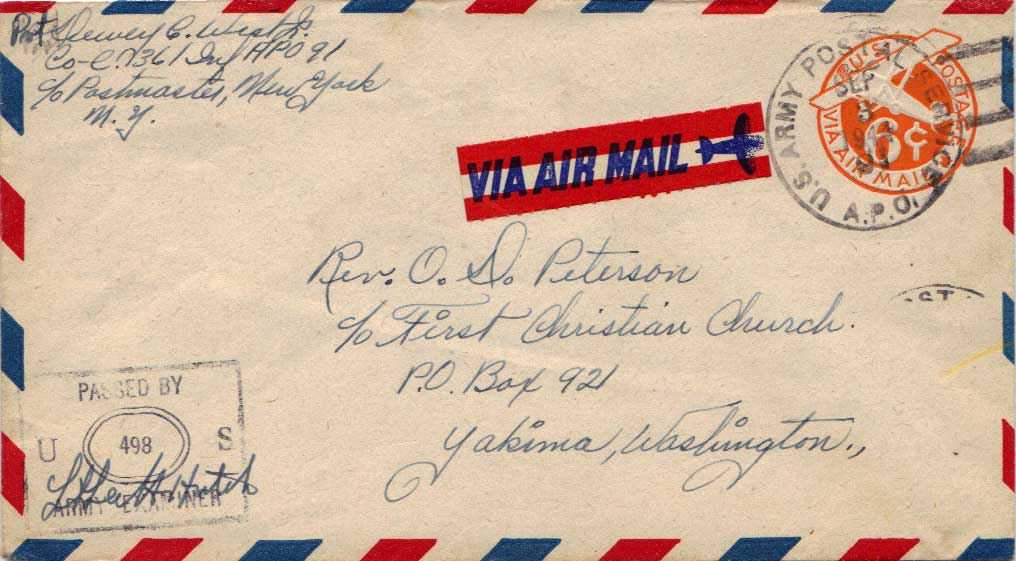 Pvt Dewey C. West Jr.
Co-C. 361 Inf APO 91
c/o Postmaster, New York
N.Y.
VIA AIR MAIL
U.S. ARMY POSTAL SERVICE
A.P.O.
SEP
8
U.S. POSTAGE
6¢
VIA AIR MAIL
Rev. O. D. Peterson
c/o First Christian Church.
P.O. Box 921
Yakima, Washington.,
PASSED BY
U 498 S
ARMY EXAMINER